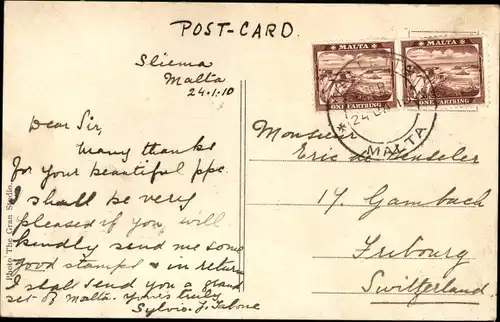 POST-CARD.
Sliema
Malta
24.1.10
Dear Sir,
Many thanks
for your beautiful ppc.
I shall be very
pleased if you will
kindly send me some
good stamped & in return
I shall send you a grand
set of Malta. Yours truly
Sylvio. J. Tabone
MALTA
ONE FARTHING
MALTA
ONE FARTHING
MALTA
Monsieur
Eric de
17. Gambach
Fribourg
Switzerland.
Photo The Gran Studio.